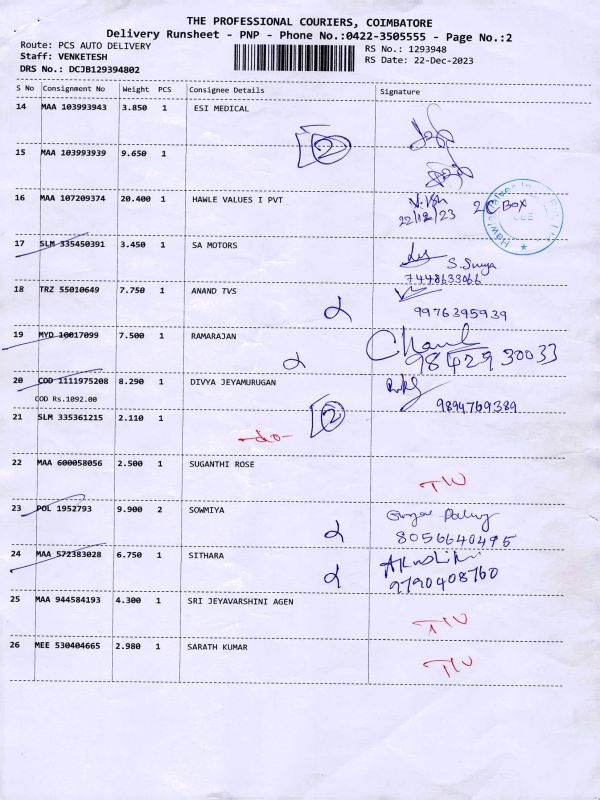 THE PROFESSIONAL COURIERS, COIMBATORE
Delivery Runsheet - PNP - Phone No.:0422-3505555 - Page No.:2
Route: PCS AUTO DELIVERY
RS No.: 1293948
Staff: VENKETESH
RS Date: 22-Dec-2023
DRS No.: DCJB129394802
S No Consignment No Weight PCS Consignee Details Signature
14 MAA 103993943 3.850 1 ESI MEDICAL
2
15 MAA 103993939 9.650 1
16 MAA 107209374 20.400 1 HAWLE VALUES I PVT
22/12/23 2 C BOX
17 SLM 335450391 3.450 1 SA MOTORS
S. Surya
7448633066
18 TRZ 55010649 7.750 1 ANAND TVS
9976395939
19 MYD 10017099 7.500 1 RAMARAJAN
98429 30033
20 COD 1111975208 8.290 1 DIVYA JEYAMURUGAN
COD Rs.1092.00
9894769389
21 SLM 335361215 2.110 1
2
-do-
22 MAA 600058056 2.500 1 SUGANTHI ROSE
23 POL 1952793 9.900 2 SOWMIYA
8056640495
24 MAA 572383028 6.750 1 SITHARA
9790408760
25 MAA 944584193 4.300 1 SRI JEYAVARSHINI AGEN
26 MEE 530404665 2.980 1 SARATH KUMAR